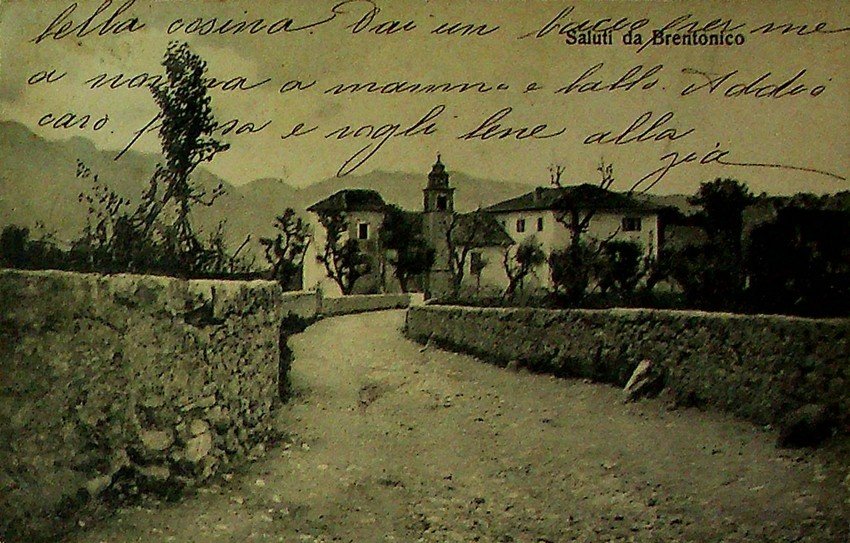 bella cosina. Dai un bacio per me
Saluti da Brentonico
a nonna a mamma e babbo. Addio
caro e vogli bene alla
zia